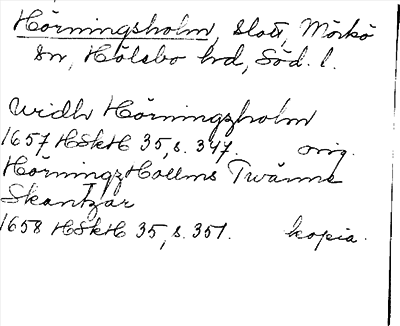 Hörningsholm, slott, Mörkö
sn, Hölebo hd, Söd. l.
widh Hörningzholm
1657 HSkH 35, s. 347. orig.
HörningzHollms Twänne
Skantzar
1658 HSkH 35, s. 351. kopia.